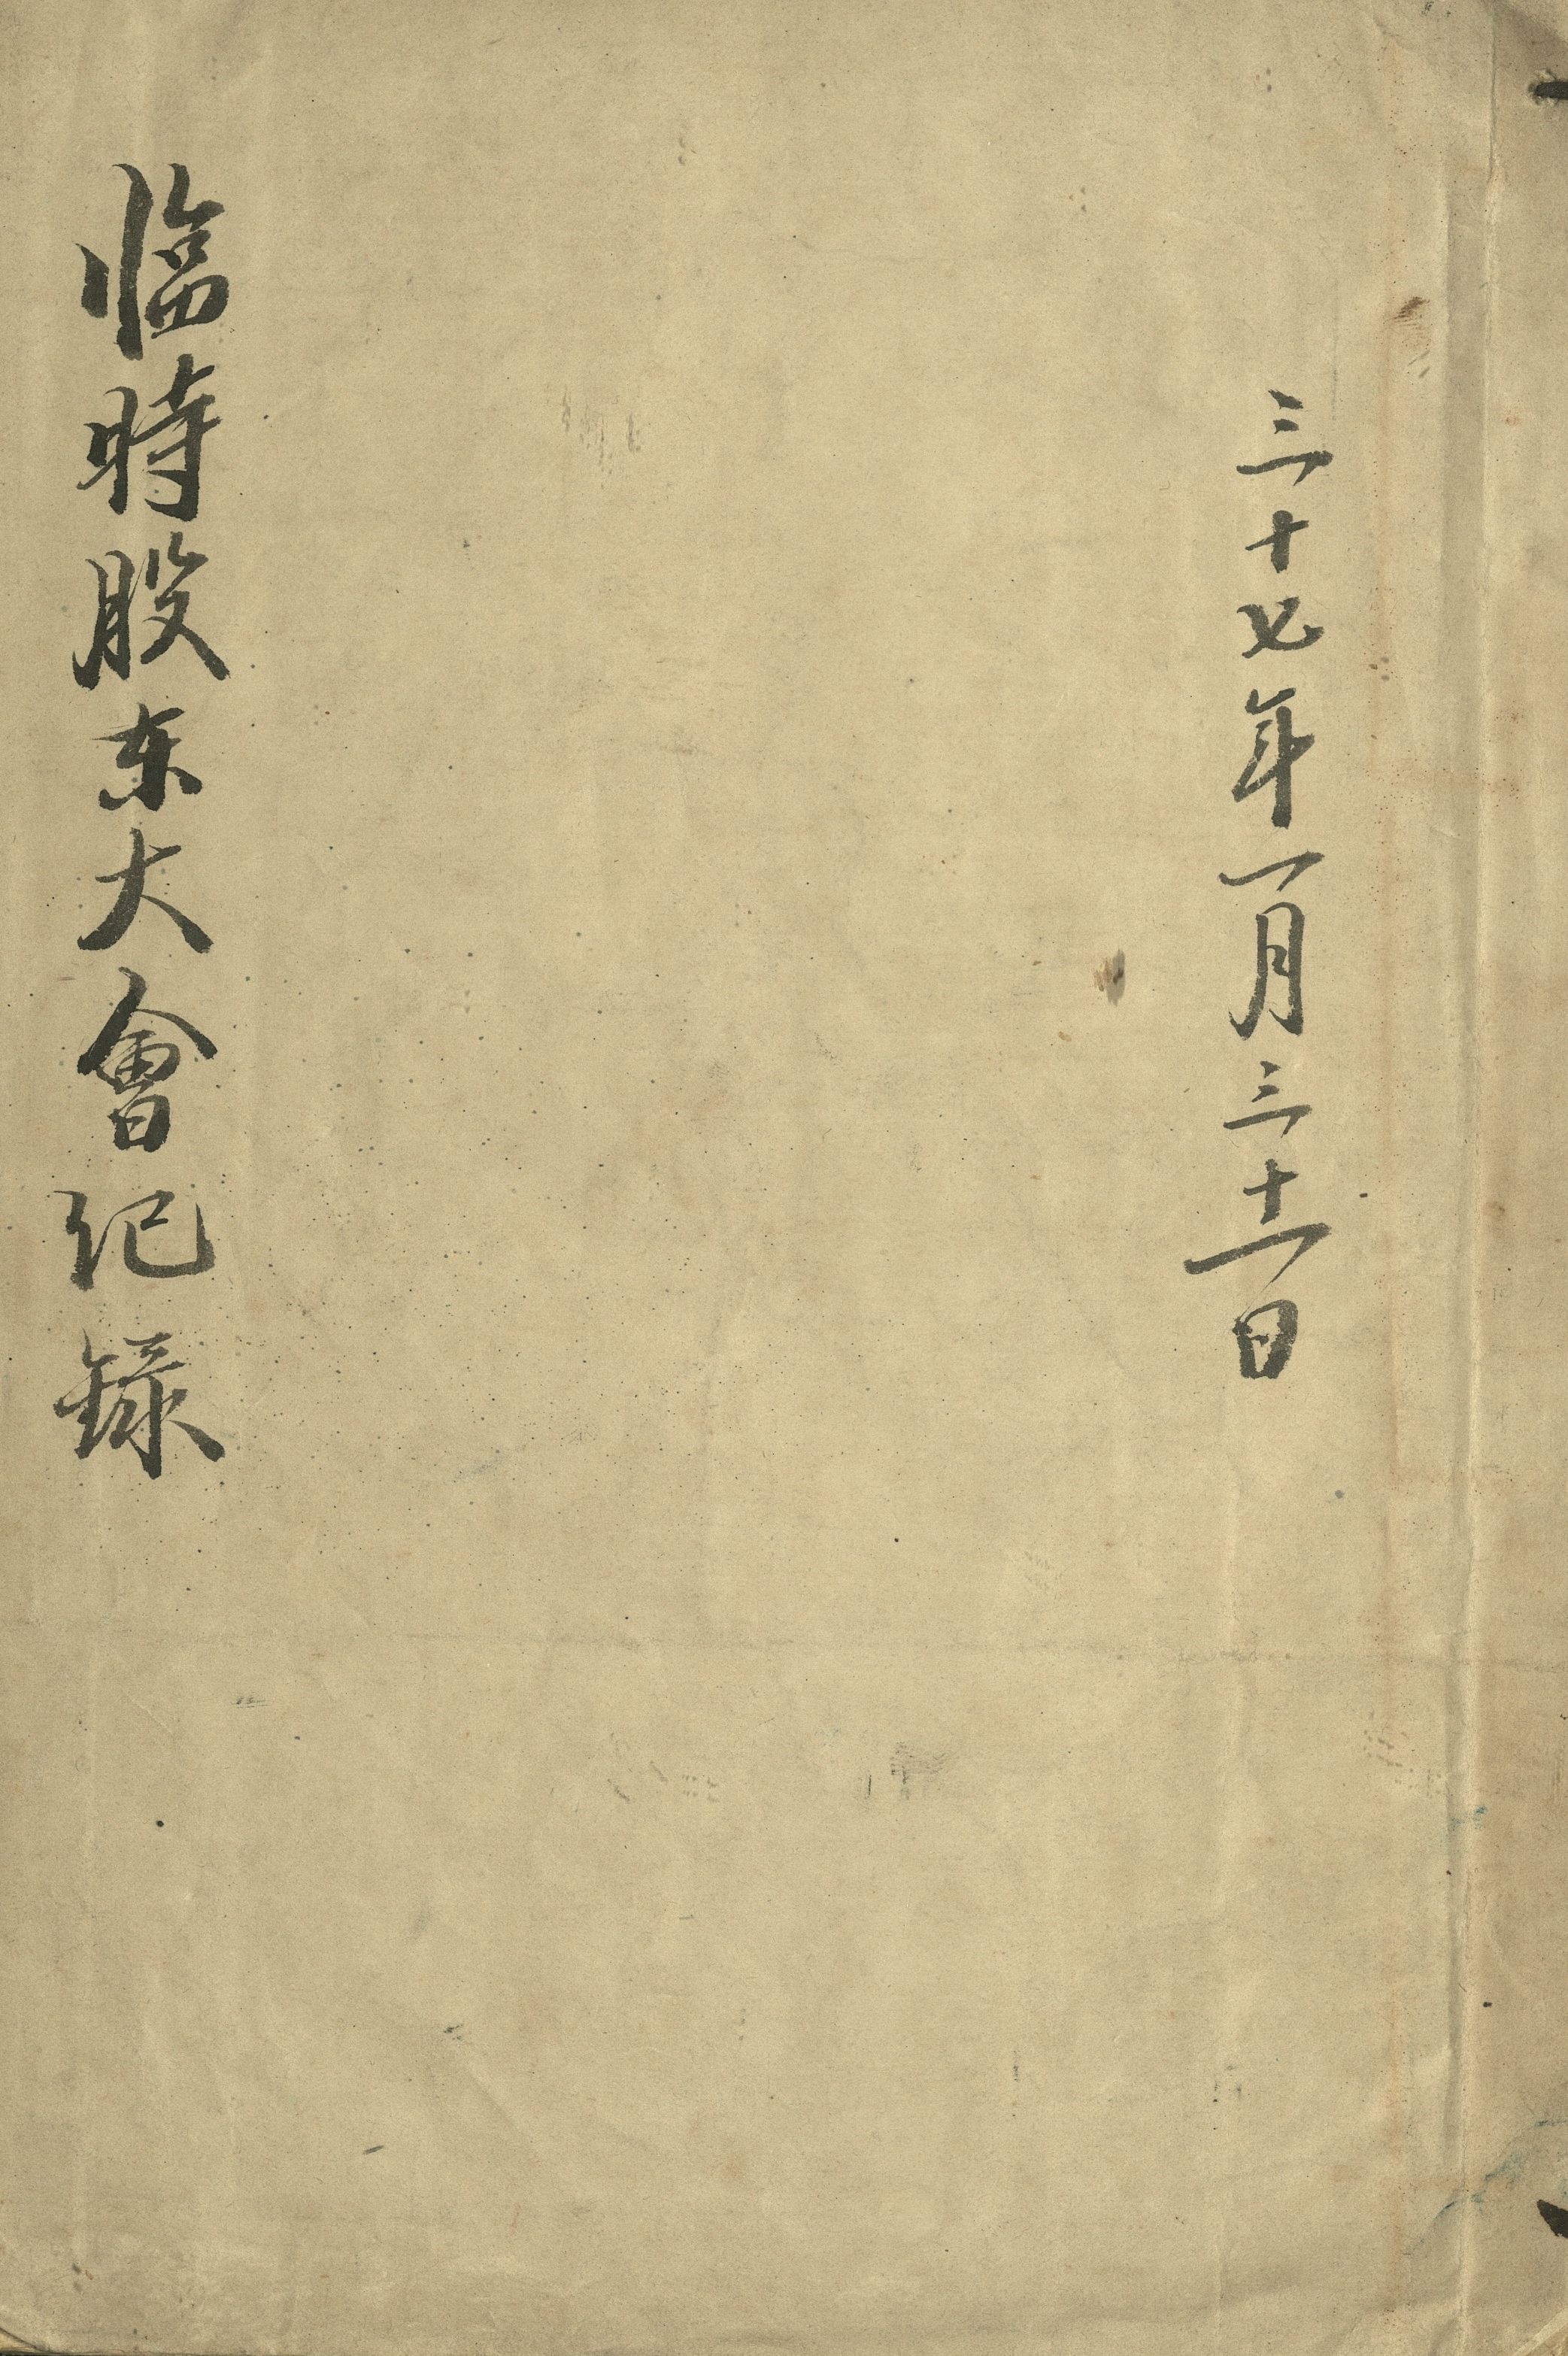 三十七年一月三十一日
临時股东大會纪錄